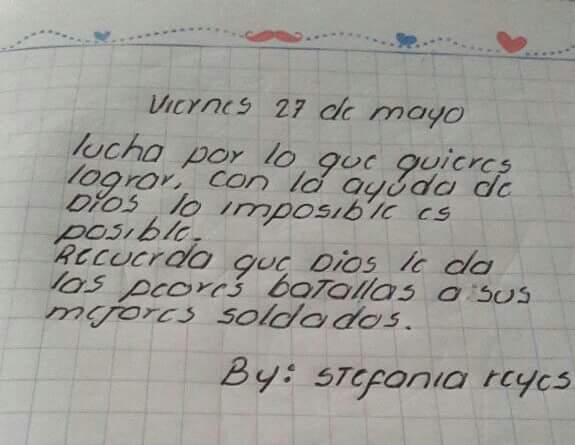 Viernes 27 de mayo
lucha por lo que quieres
lograr, con la ayuda de
Dios lo imposible es
posible.
Recuerda que Dios le da
las peores batallas a sus
mejores soldados.
By: Stefania reyes